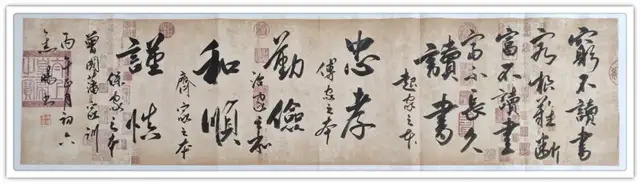 窮不讀書
窮根難斷
富不讀書
富不長久
讀書
起家之本
忠孝
傳家之本
勤儉
治家之本
和順
齊家之本
謹慎
保家之本
曾國藩家訓
丙午正月初六
書